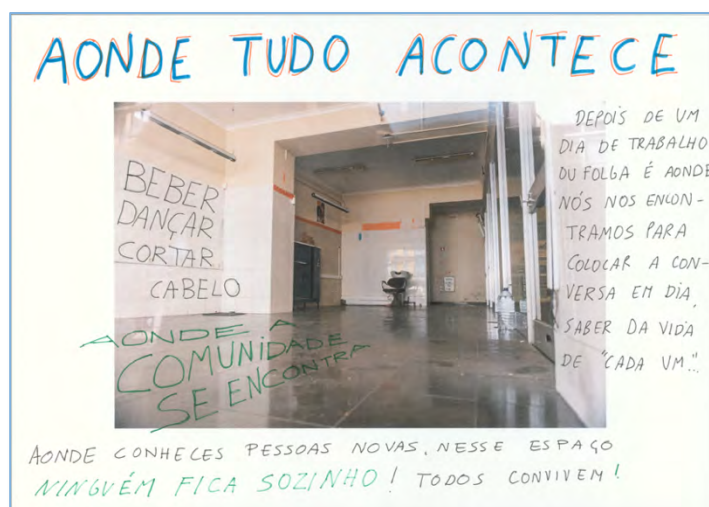 AONDE TUDO ACONTECE
BEBER
DANÇAR
CORTAR
CABELO
AONDE A
COMUNIDADE
SE ENCONTRA
DEPOIS DE UM
DIA DE TRABALHO
OU FOLGA É AONDE
NÓS NOS ENCON-
TRAMOS PARA
COLOCAR A CON-
VERSA EM DIA,
SABER DA VIDA
DE "CADA UM"...
AONDE CONHECES PESSOAS NOVAS, NESSE ESPAÇO
NINGUÉM FICA SOZINHO! TODOS CONVIVEM!